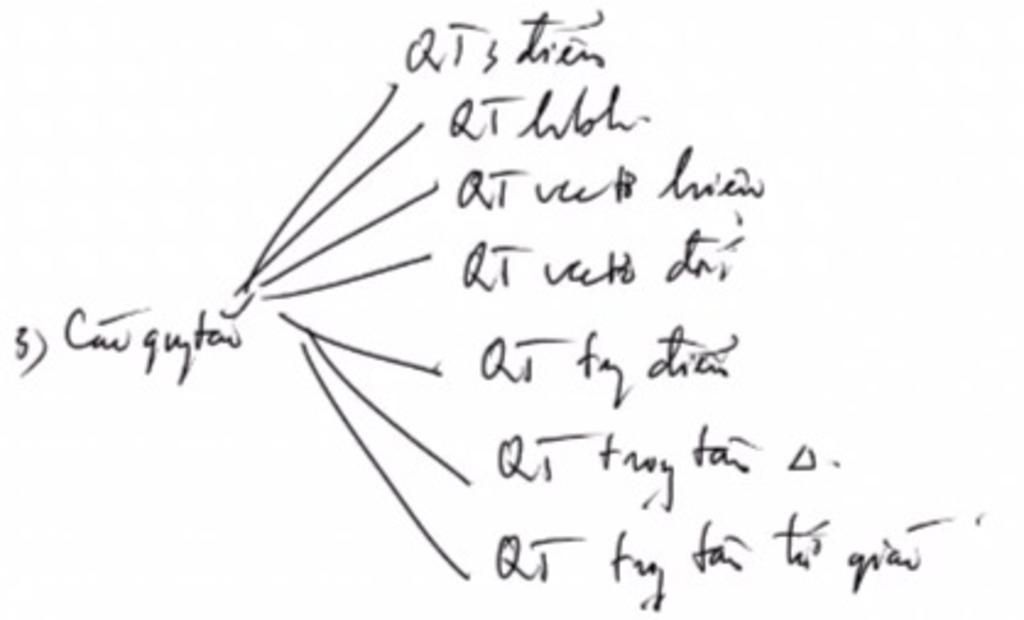 QT 3 điểm
QT hbh.
QT vectơ hiệu
QT vectơ đối
3) Các quy tắc
QT trg điểm
QT trọng tâm Δ.
QT trg tâm tứ giác